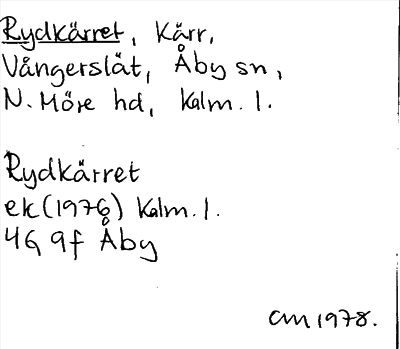 Rydkärret, Kärr,
Vångerslät, Åby sn,
N. Möre hd, Kalm. l.
Rydkärret
ek (1976) Kalm. l.
4G 9f Åby
am 1978.